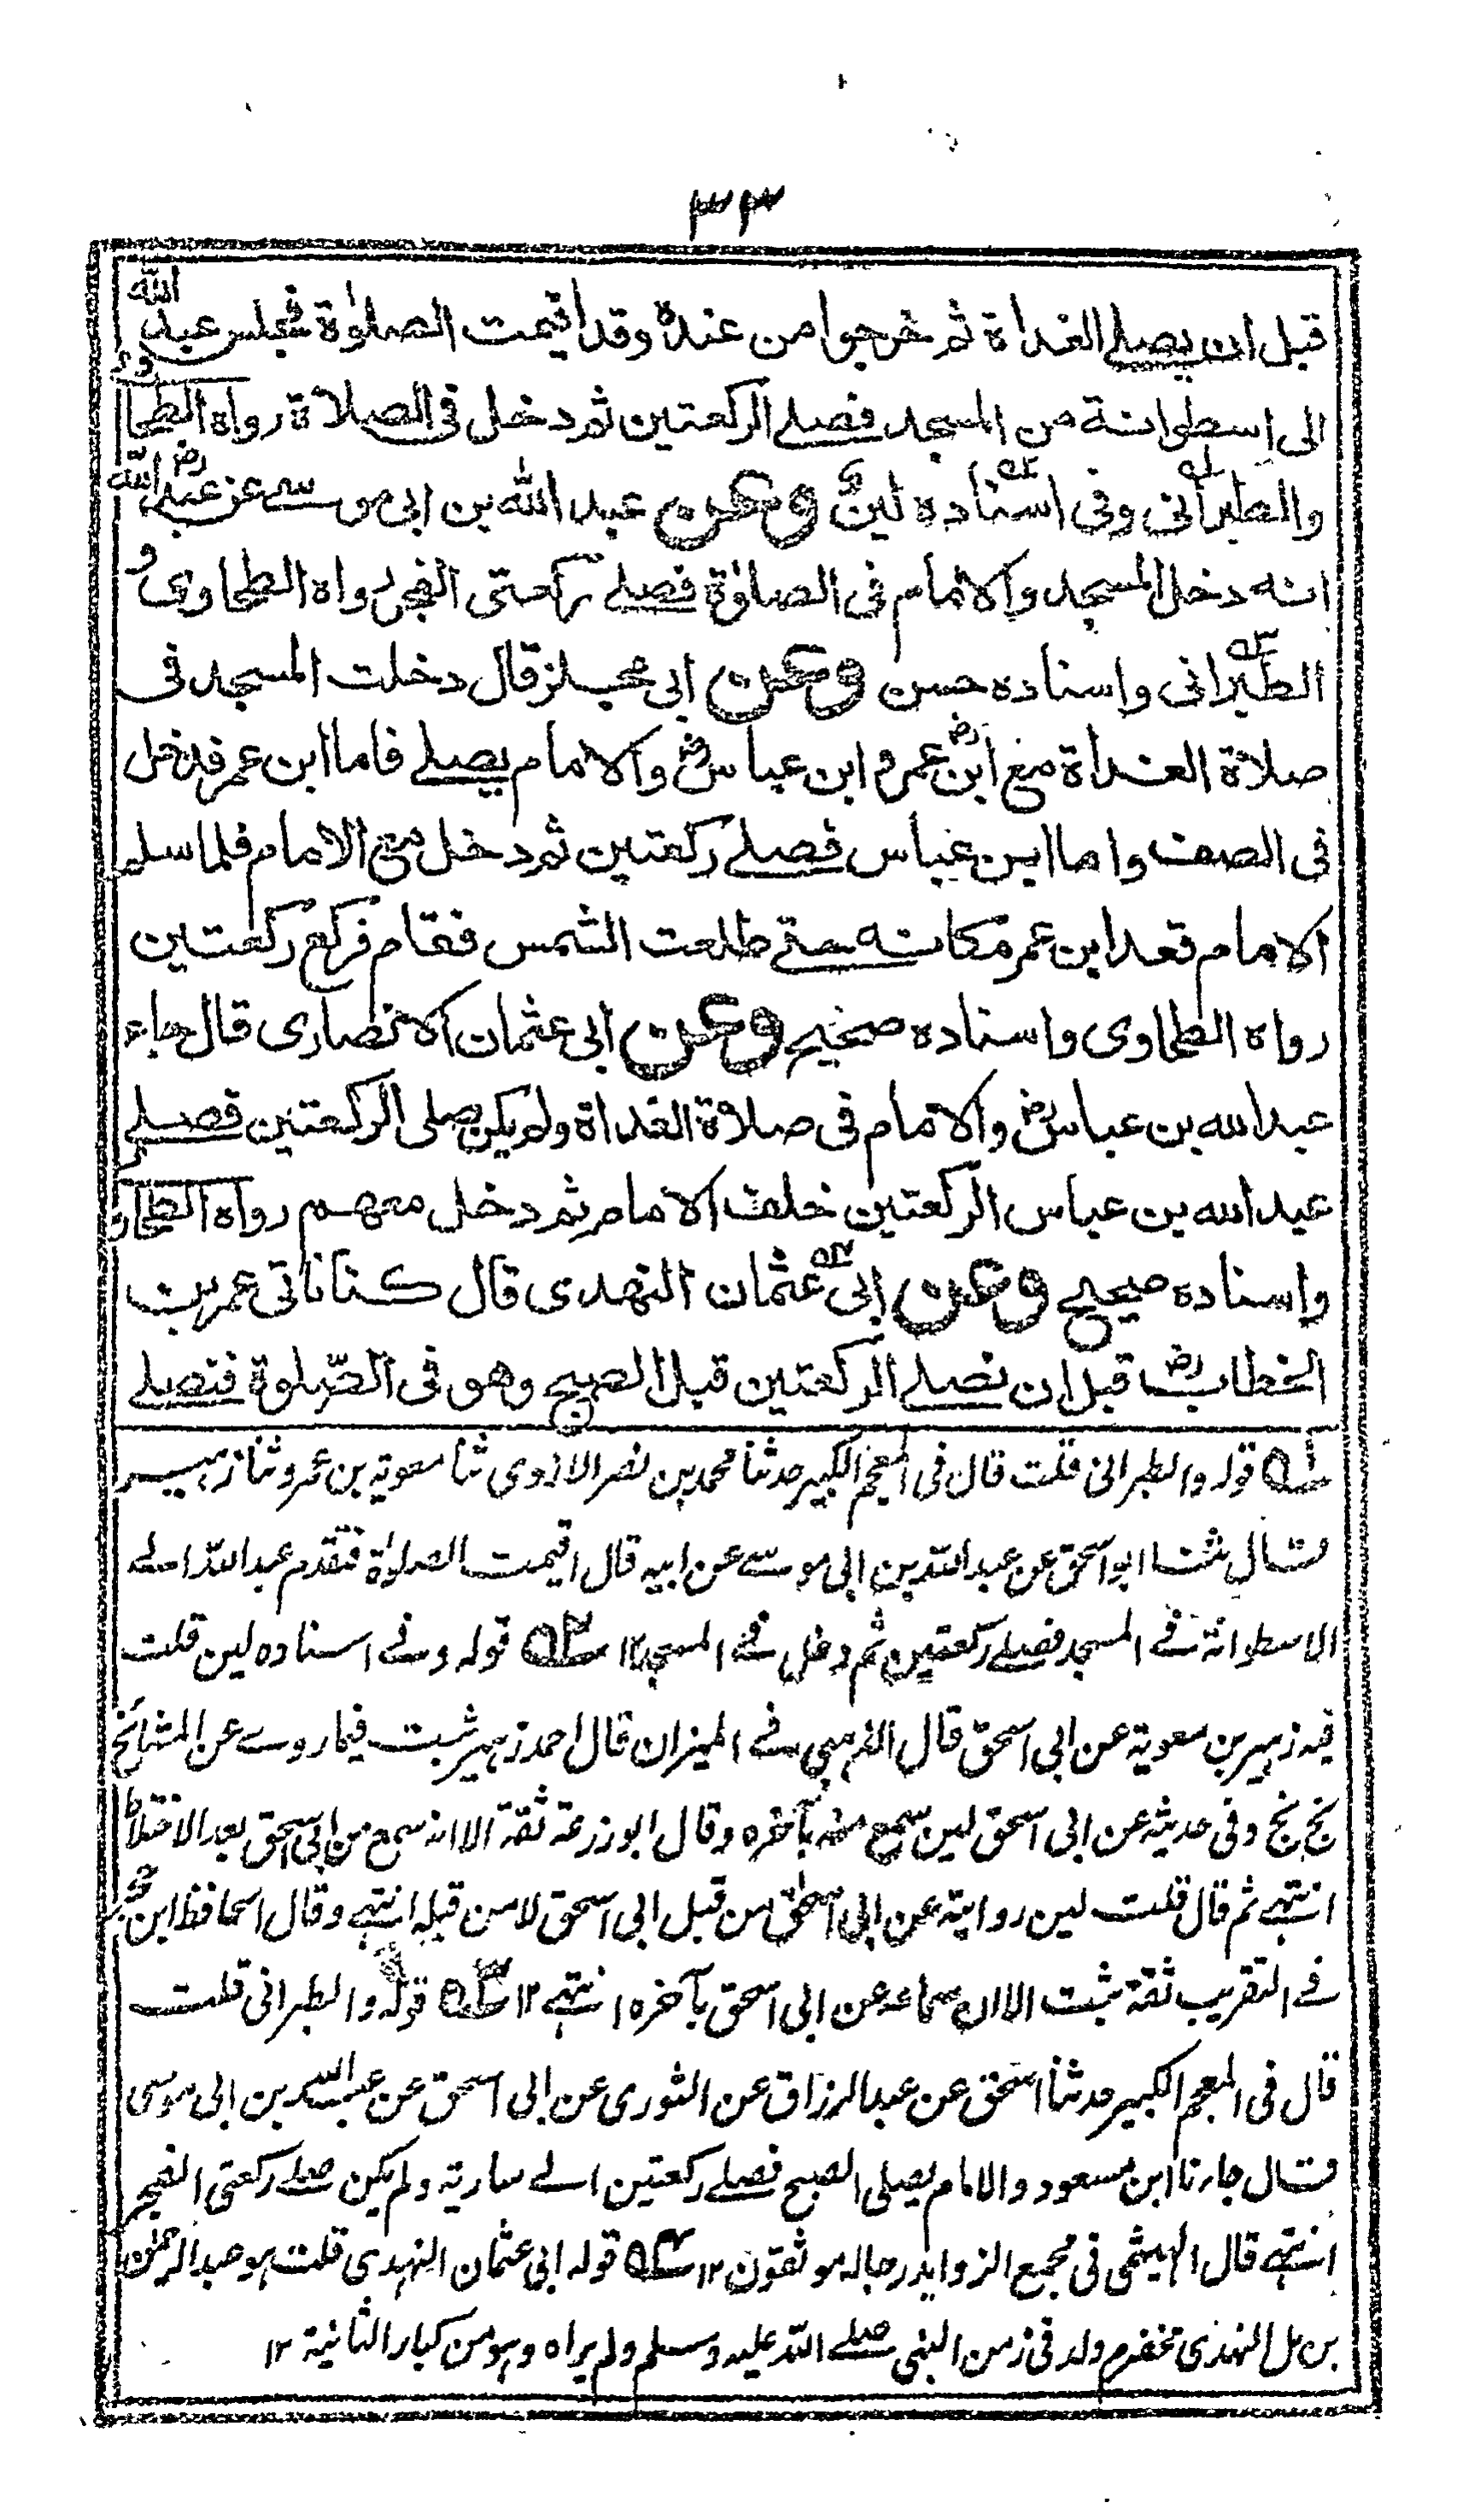 ٣٣
قبل ان يصلے الغداة ثم خرجوا من عنده وقد اقيمت الصلوٰة فجلس عبد الله
الى اسطوانة من المسجد فصلے الركعتين ثم دخل فى الصلاة رواه الطحاوى
والطبرانى وفى اسناده لين وعن عبد الله بن ابى موسے عن عبد الله رض
انه دخل المسجد والامام فى الصلوٰة فصلے ركعتى الفجر رواه الطحاوى و
الطبرانى واسناده حسن وعن ابى مجلز قال دخلت المسجد فى
صلاة الغداة مع ابن عمر وابن عباس رض والامام يصلے فاما ابن عمر فدخل
فى الصف واما ابن عباس فصلے ركعتين ثم دخل مع الامام فلما سلم
الامام قعد ابن عمر مكانه حتے طلعت الشمس فقام فركع ركعتين
رواه الطحاوى واسناده صحيح وعن ابى عثمان الانصارى قال جاء
عبد الله بن عباس رض والامام فى صلاة الغداة ولم يكن صلى الركعتين فصلے
عبد الله بن عباس الركعتين خلف الامام ثم دخل معهم رواه الطحاوى
واسناده صحيح وعن ابى عثمان النهدى قال كنا ناتى عمر بن
الخطاب رض قبل ان نصلے الركعتين قبل الصبح وهو فى الصّلوة فنصلے
لہ قوله والطبرانى قلت قال فى المعجم الكبير حدثنا محمد بن نصر الازدى ثنا معوية بن عمرو ثنا زهير
قال ثنا ابو اسحق عن عبد الله بن ابى موسے عن ابيه قال اقيمت الصلوٰة فتقدم عبد الله الے
الاسطوانة فے المسجد فصلے ركعتين ثم دخل فے المسجد ١٢ ٢ہ قوله وفے اسناده لين قلت
فيه زهير بن معوية عن ابى اسحق قال الذهبى فے الميزان قال احمد زهير ثبت فيما روے عن المشائخ
بخ بخ وفى حديثه عن ابى اسحق لين سمع منه بآخره وقال ابو زرعة ثقة الا انه سمع من ابى اسحق بعد الاختلاط
انتهے ثم قال قلت لين روايته عن ابى اسحٰق من قبل ابى اسحق لا من قبله انتهے وقال الحافظ ابن حجر
فے التقريب ثقة ثبت الا ان سماعه عن ابى اسحق بآخره انتهے ١٢ ٣ہ قوله والطبرانى قلت
قال فى المعجم الكبير حدثنا اسحق عن عبد الرزاق عن الثورى عن ابى اسحق عن عبد الله بن ابى موسى
قال جاءنا ابن مسعود والامام يصلى الصبح فصلے ركعتين الے سارية ولم يكن صلے ركعتى الفجر
انتهے قال الهيثمى فى مجمع الزوايد رجاله موثقون ١٢ ٤ہ قوله ابى عثمان النهدى قلت هو عبد الرحمٰن
بن مل النهدى مخضرم ولد فى زمن النبى صلے الله عليه وسلم ولم يراه وهو من كبار الثانية ١٢